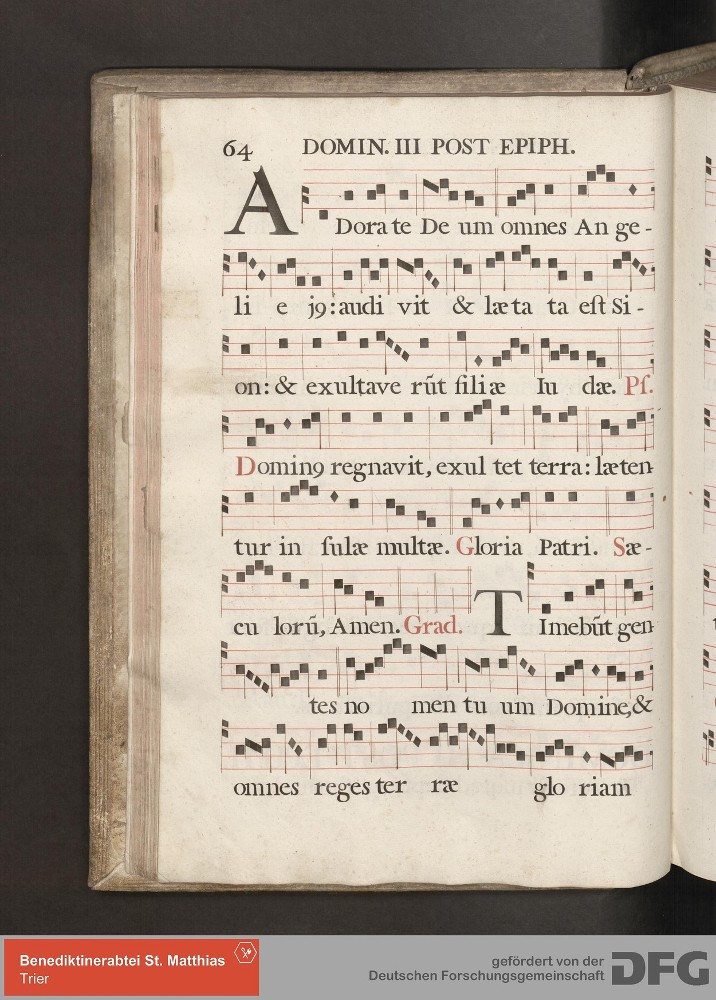 64 DOMIN. III POST EPIPH.
A Dora te De um omnes An ge-
li e jꝯ: audi vit & læta ta eſt Si-
on: & exultave rūt filiæ Iu dæ. Pſ.
Dominꝯ regnavit, exul tet terra: læten-
tur in ſulæ multæ. Gloria Patri. Sæ-
cu lorū, Amen. Grad. T Imebūt gen-
tes no men tu um Domine, &
omnes reges ter ræ glo riam
Benediktinerabtei St. Matthias
Trier
gefördert von der
Deutschen Forschungsgemeinschaft DFG